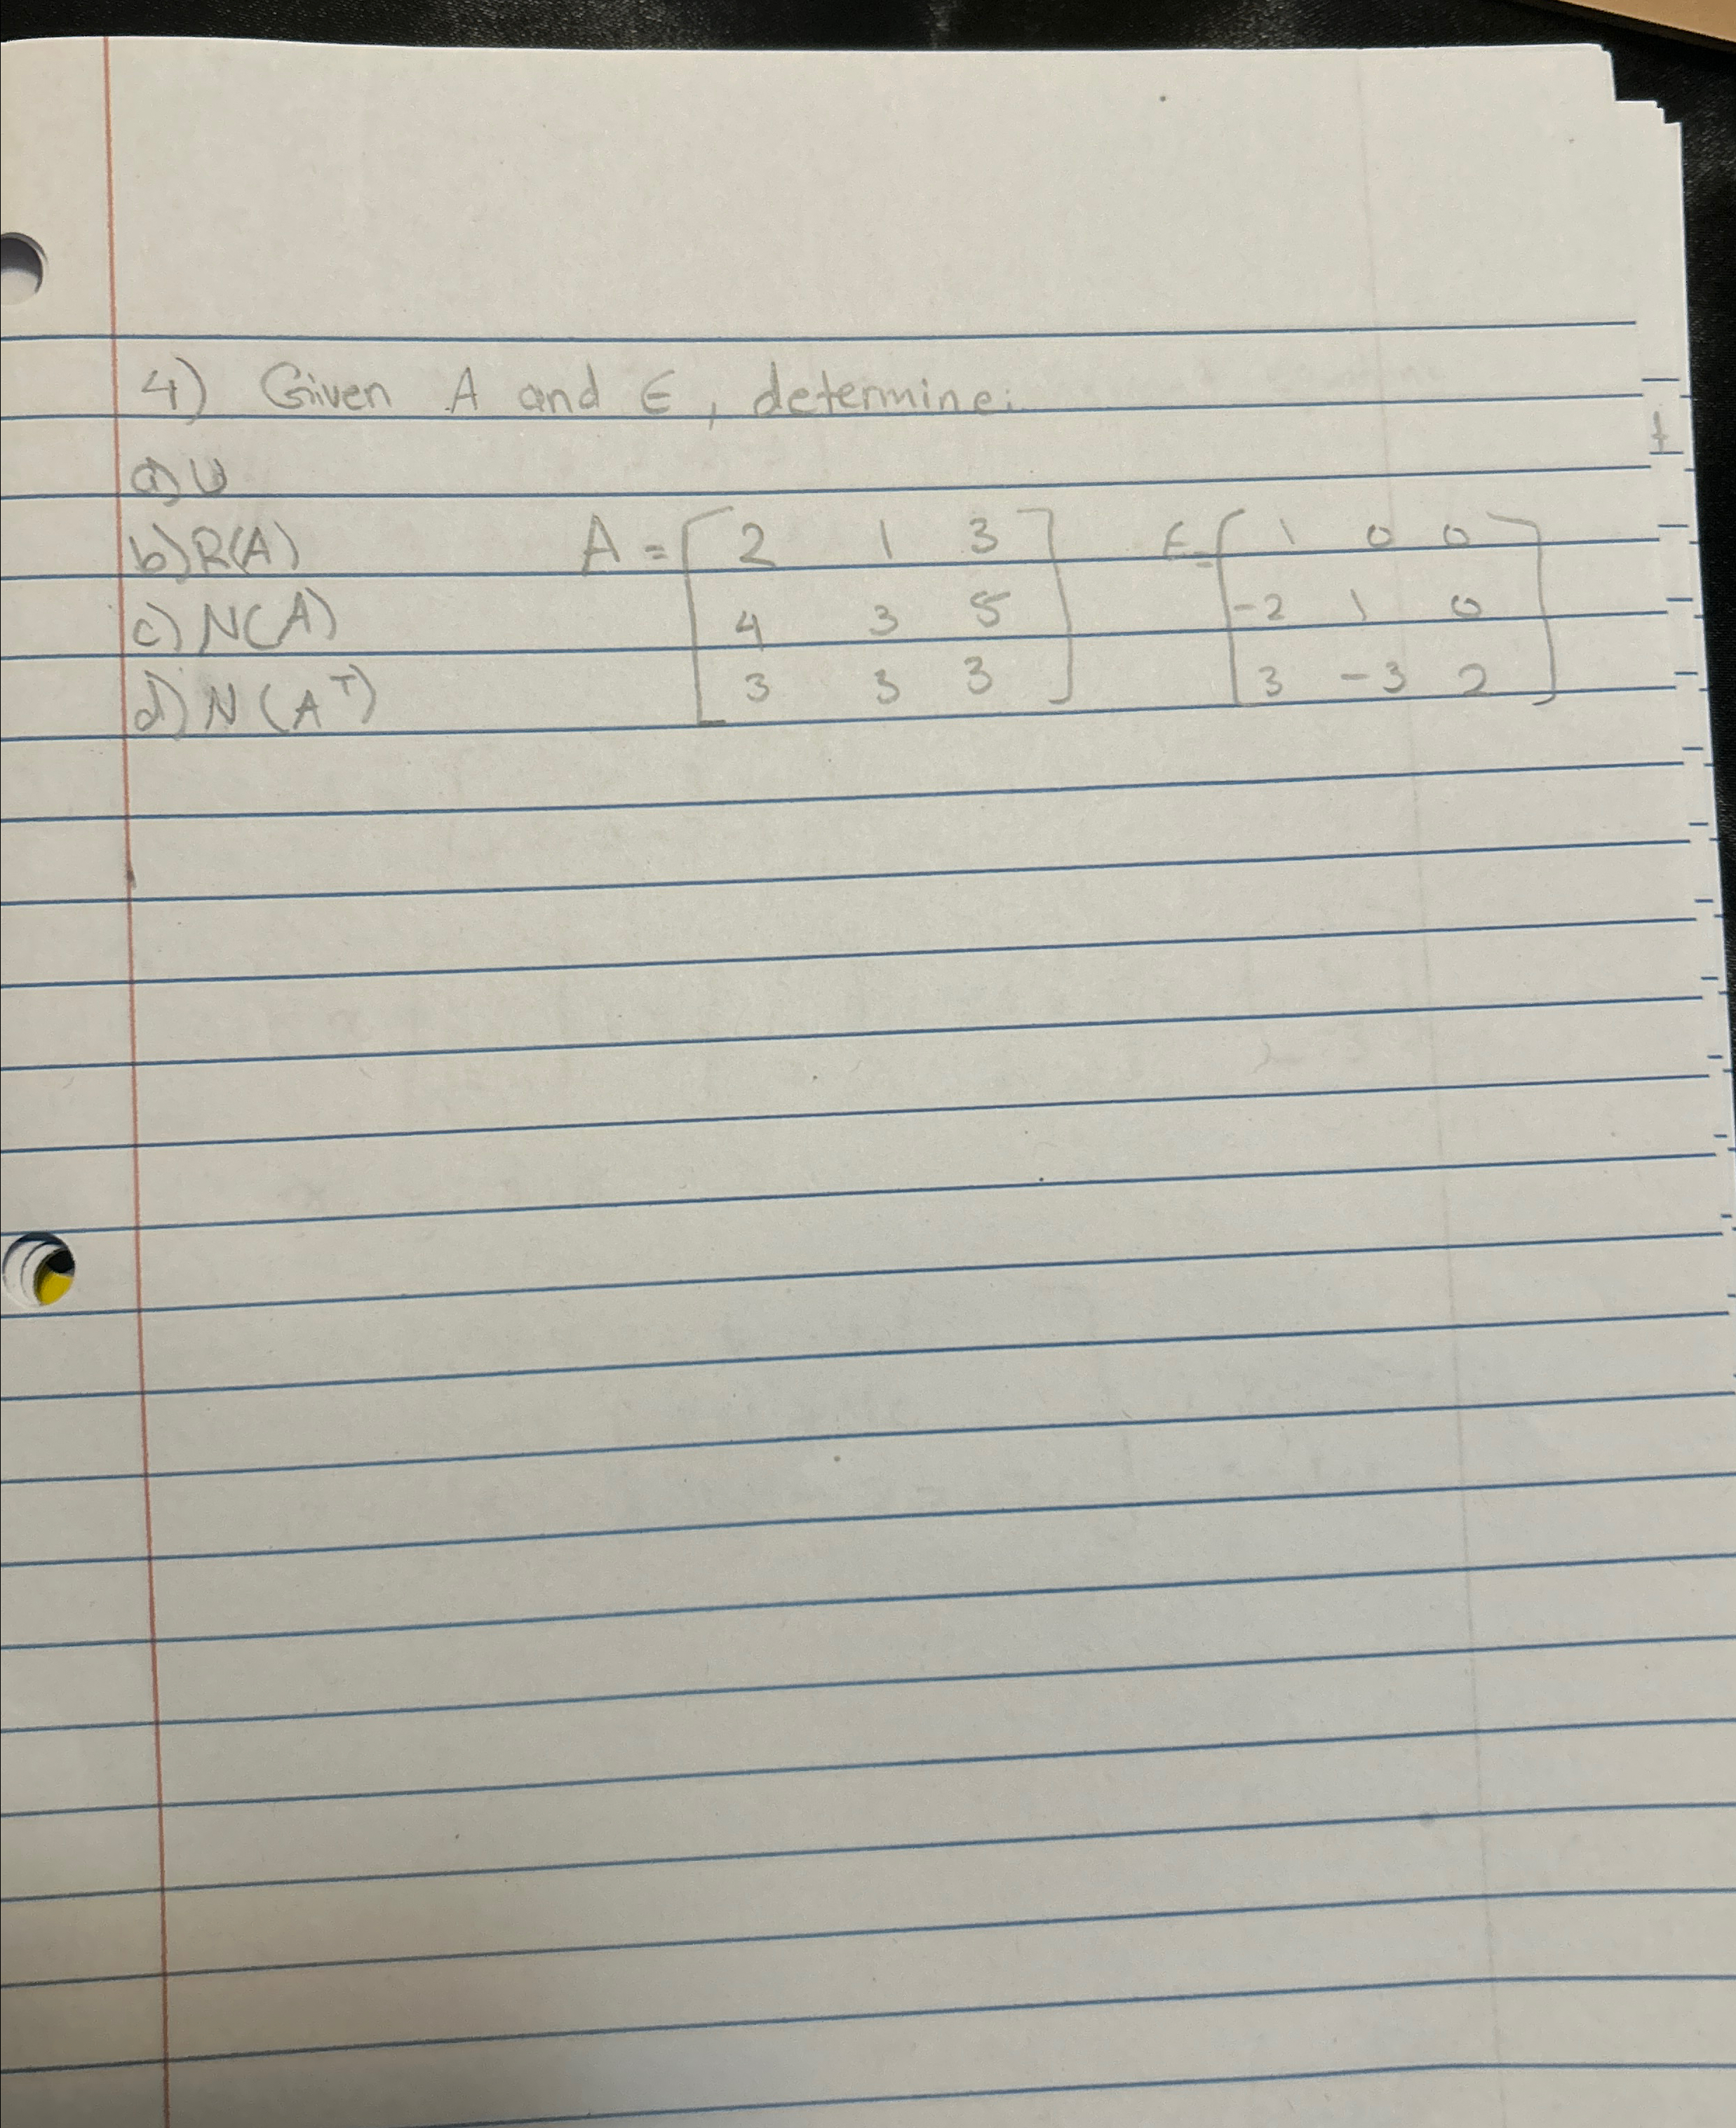 4) Given A and E, determine:
a) U
b) R(A)
c) N(A)
d) N(Aᵀ)
A = [ 2 1 3
4 3 5
3 3 3 ]
E = [ 1 0 0
-2 1 0
3 -3 2 ]